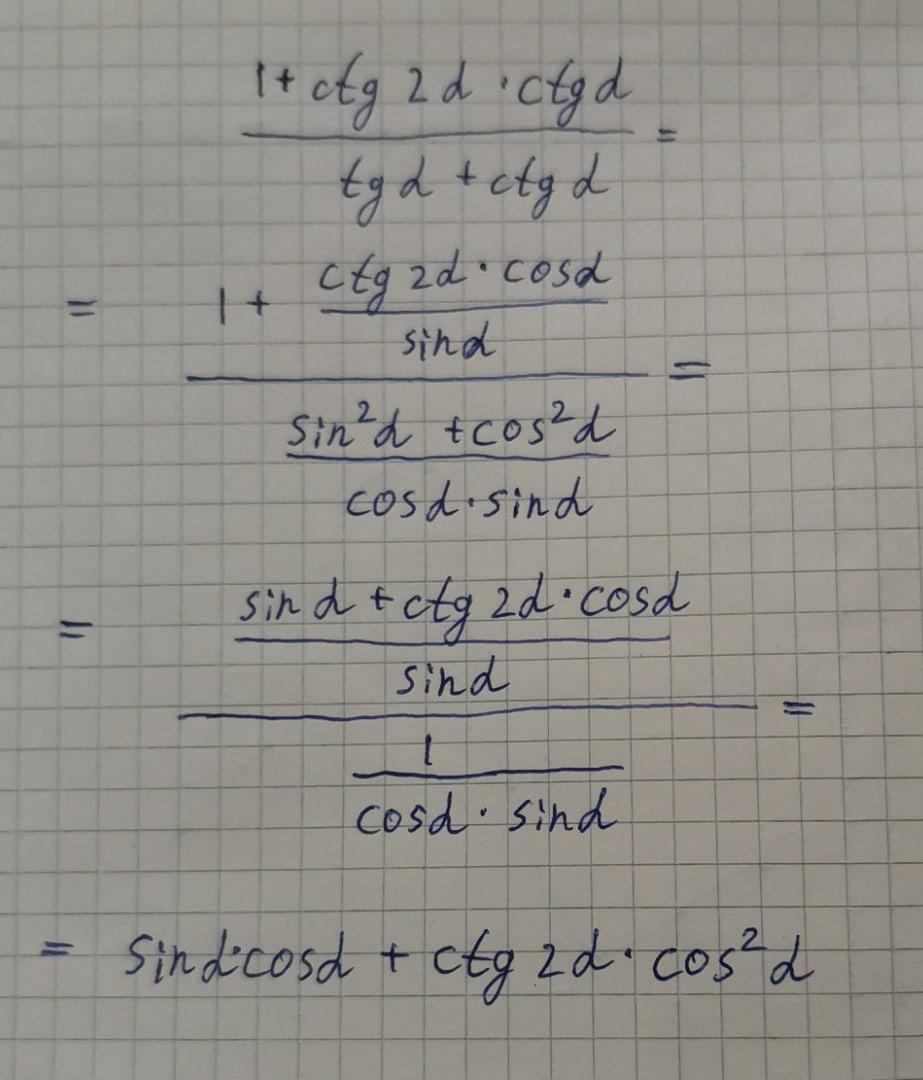 1 + ctg 2α · ctg α
tg α + ctg α =
= 1 + ctg 2α · cos α
sin α
=
sin²α + cos²α
cos α · sin α
= sin α + ctg 2α · cos α
sin α
=
1
cos α · sin α
= sin α · cos α + ctg 2α · cos²α